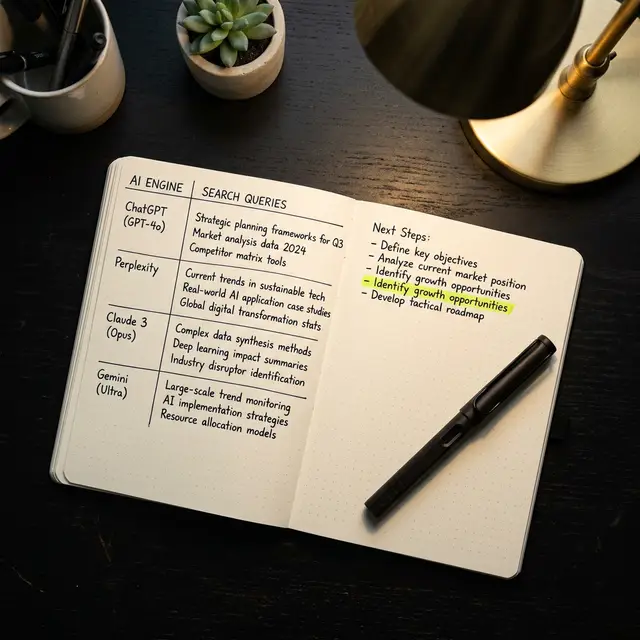 AI ENGINE | SEARCH QUERIES
ChatGPT
(GPT-4o)
Strategic planning frameworks for Q3
Market analysis data 2024
Competitor matrix tools
Perplexity
Current trends in sustainable tech
Real-world AI application case studies
Global digital transformation stats
Claude 3
(Opus)
Complex data synthesis methods
Deep learning impact summaries
Industry disruptor identification
Gemini
(Ultra)
Large-scale trend monitoring
AI implementation strategies
Resource allocation models
Next Steps:
- Define key objectives
- Analyze current market position
- Identify growth opportunities
- Identify growth opportunities
- Develop tactical roadmap